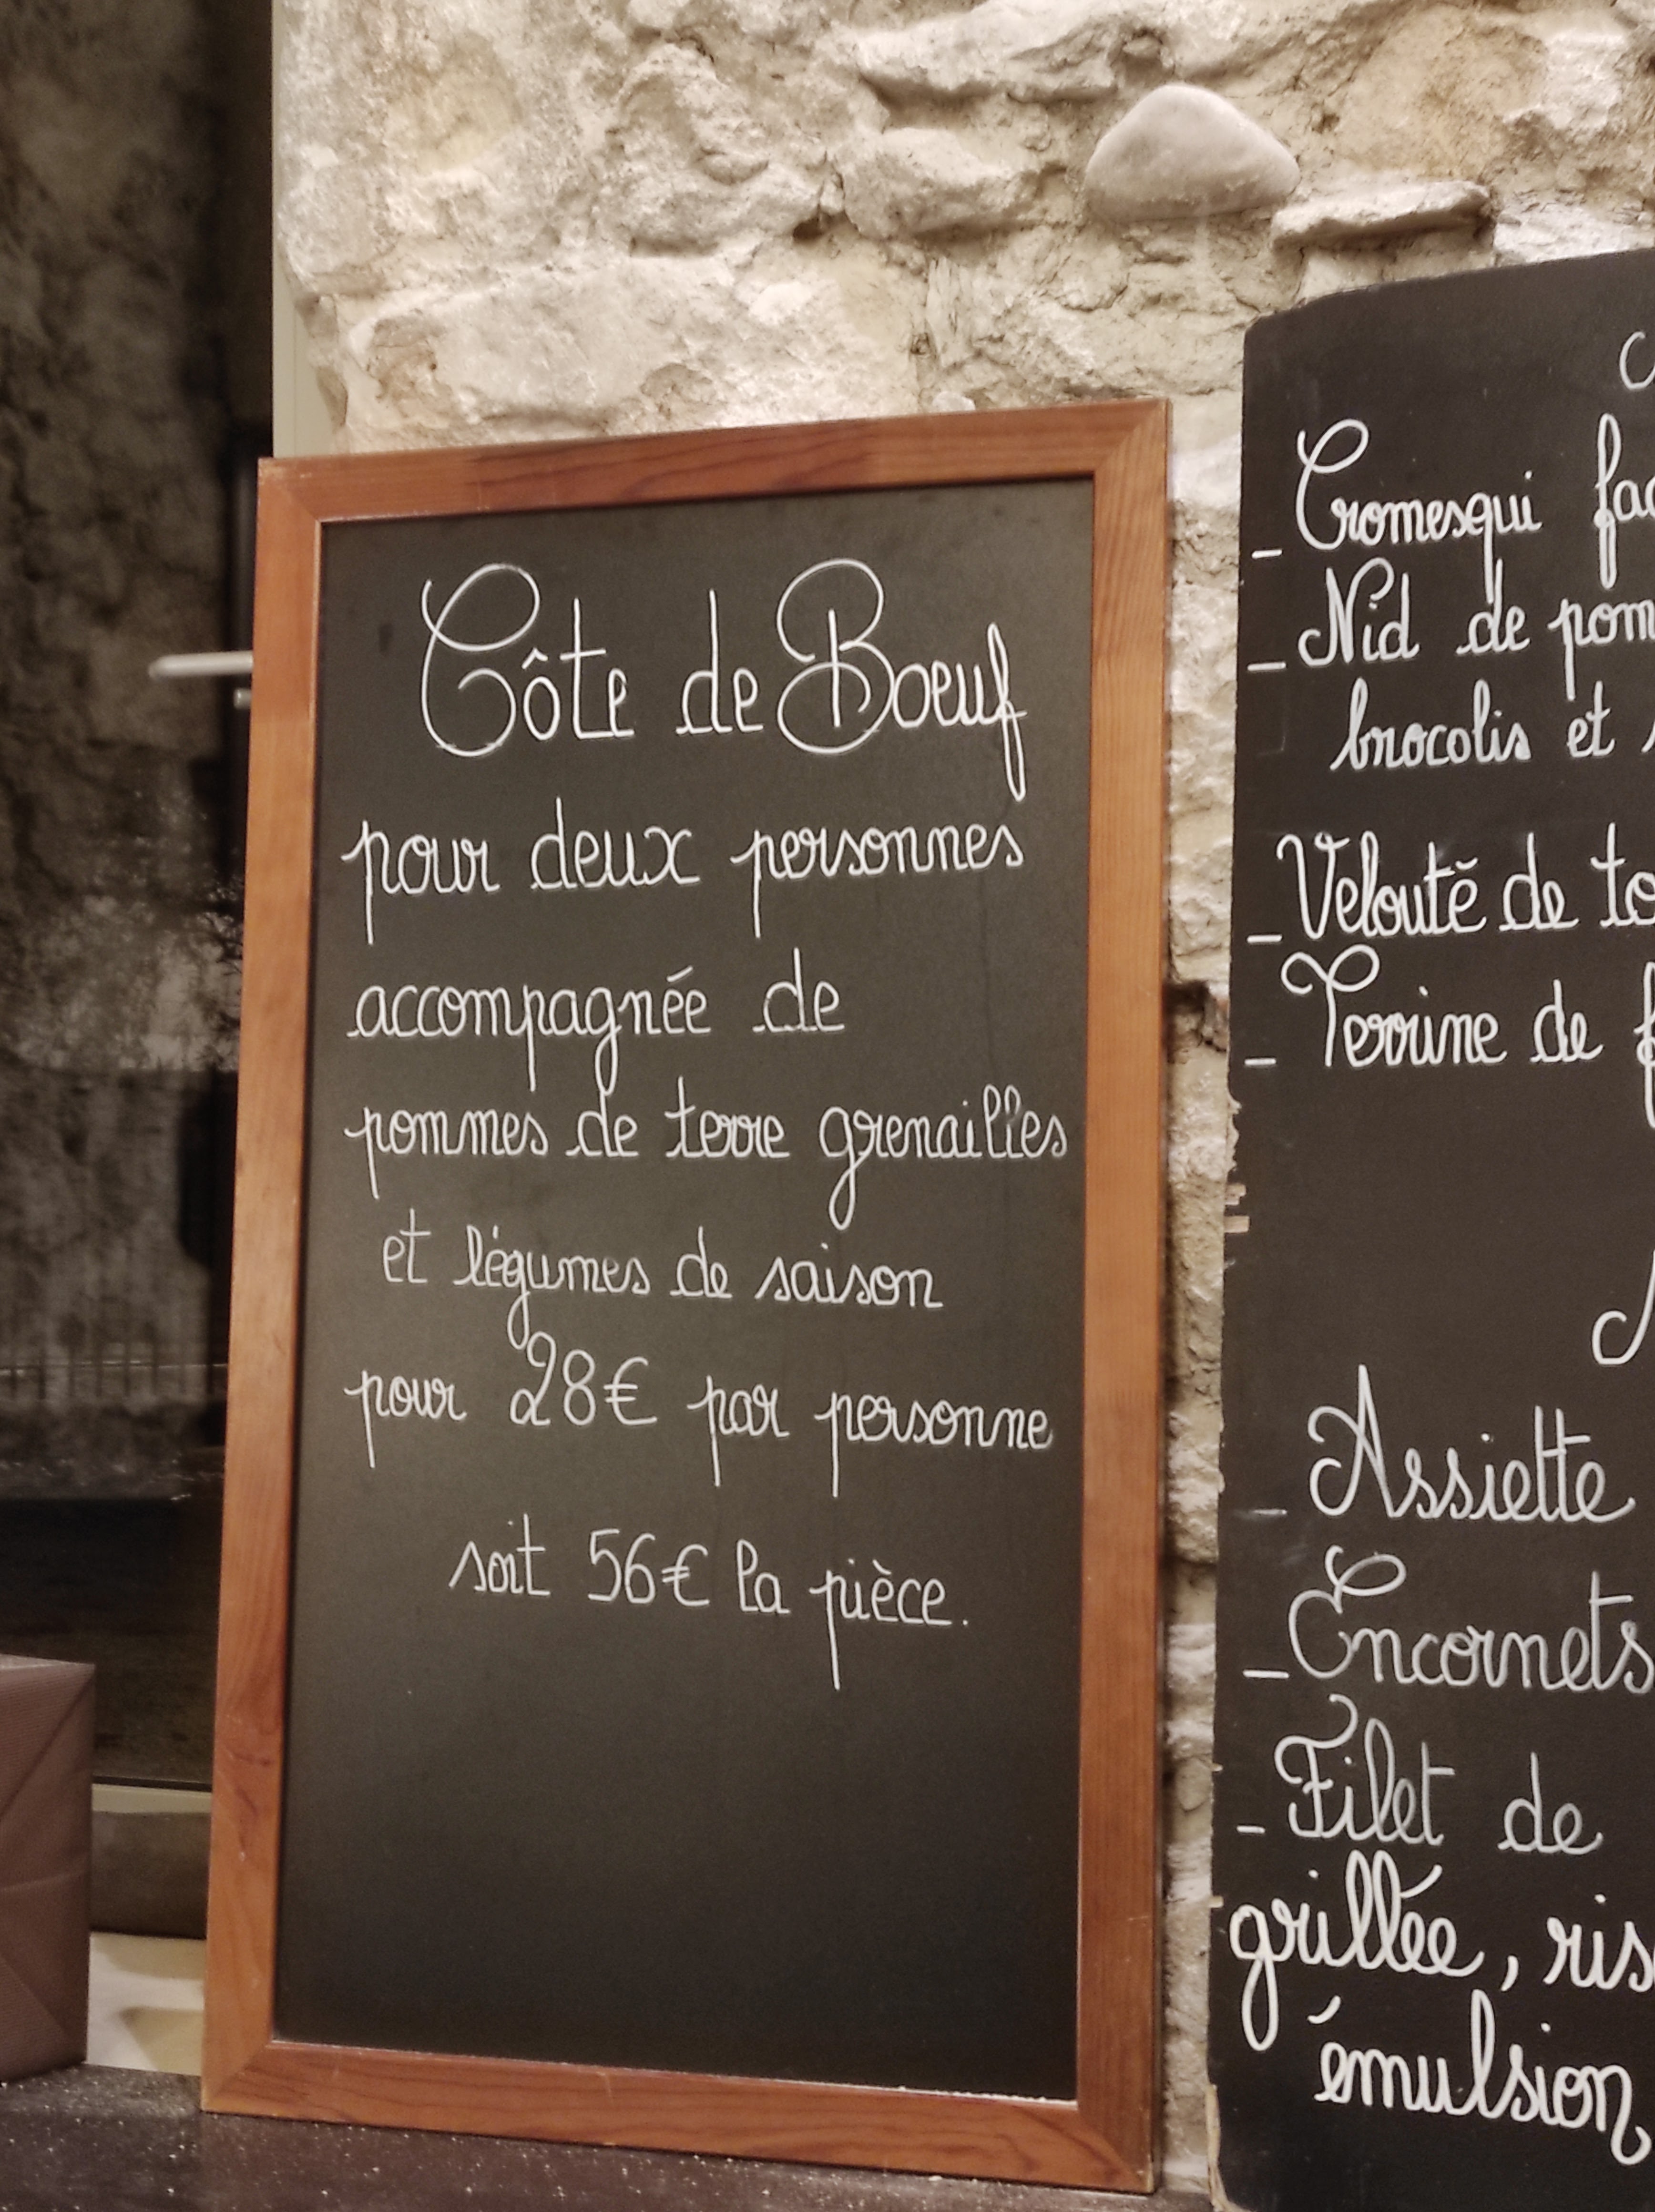 Côte de Boeuf
pour deux personnes
accompagnée de
pommes de terre grenailles
et légumes de saison
pour 28€ par personne
soit 56€ la pièce.
_ Cromesqui
_ Nid de
brocolis et
_ Velouté de
_ Terrine de
_ Assiette
_ Encornets
_ Filet de
grillée,
émulsion